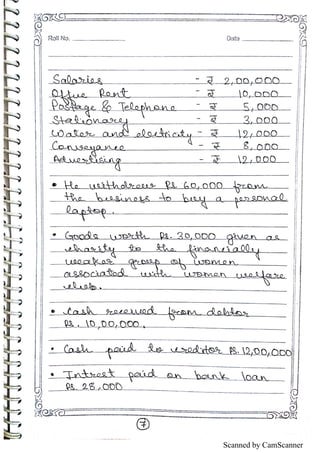 Roll No. Date
Salaries - ₹ 2,00,000
Office Rent - ₹ 10,000
Postage & Telephone - ₹ 5,000
Stationary - ₹ 3,000
Water and electricity - ₹ 12,000
Conveyance - ₹ 8,000
Advertising - ₹ 12,000
• He withdrew Rs 60,000 from
the business to buy a personal
laptop.
• Goods worth Rs. 30,000 given as
charity to the financially
weaker group of women
associated with women welfare
club.
• Cash received from debtor
Rs. 10,00,000.
• Cash paid to creditor Rs. 12,00,000
• Intrest paid on bank loan
Rs. 28,000
7
Scanned by CamScanner